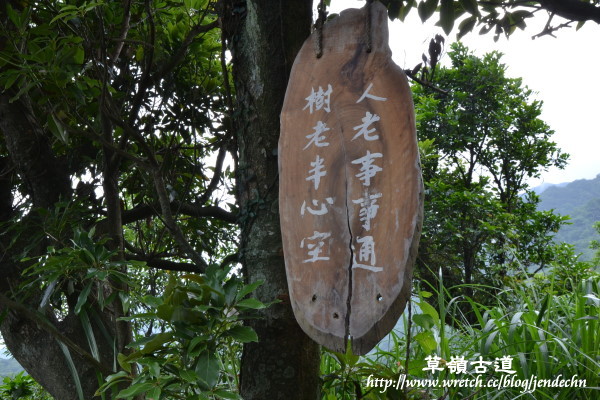 人老事事通
樹老半心空
草嶺古道
http://www.wretch.cc/blog/jendechn